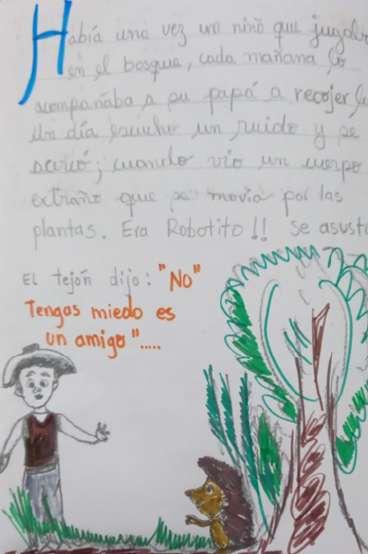 Había una vez un niño que jugaba
en el bosque, cada mañana lo
acompañaba a su papá a recojer
Un día escucho un ruido y se
acercó; cuando vio un cuerpo
extraño que se movia por las
plantas. Era Robotito!! se asustó
EL tejón dijo: "NO"
Tengas miedo es
un amigo".....